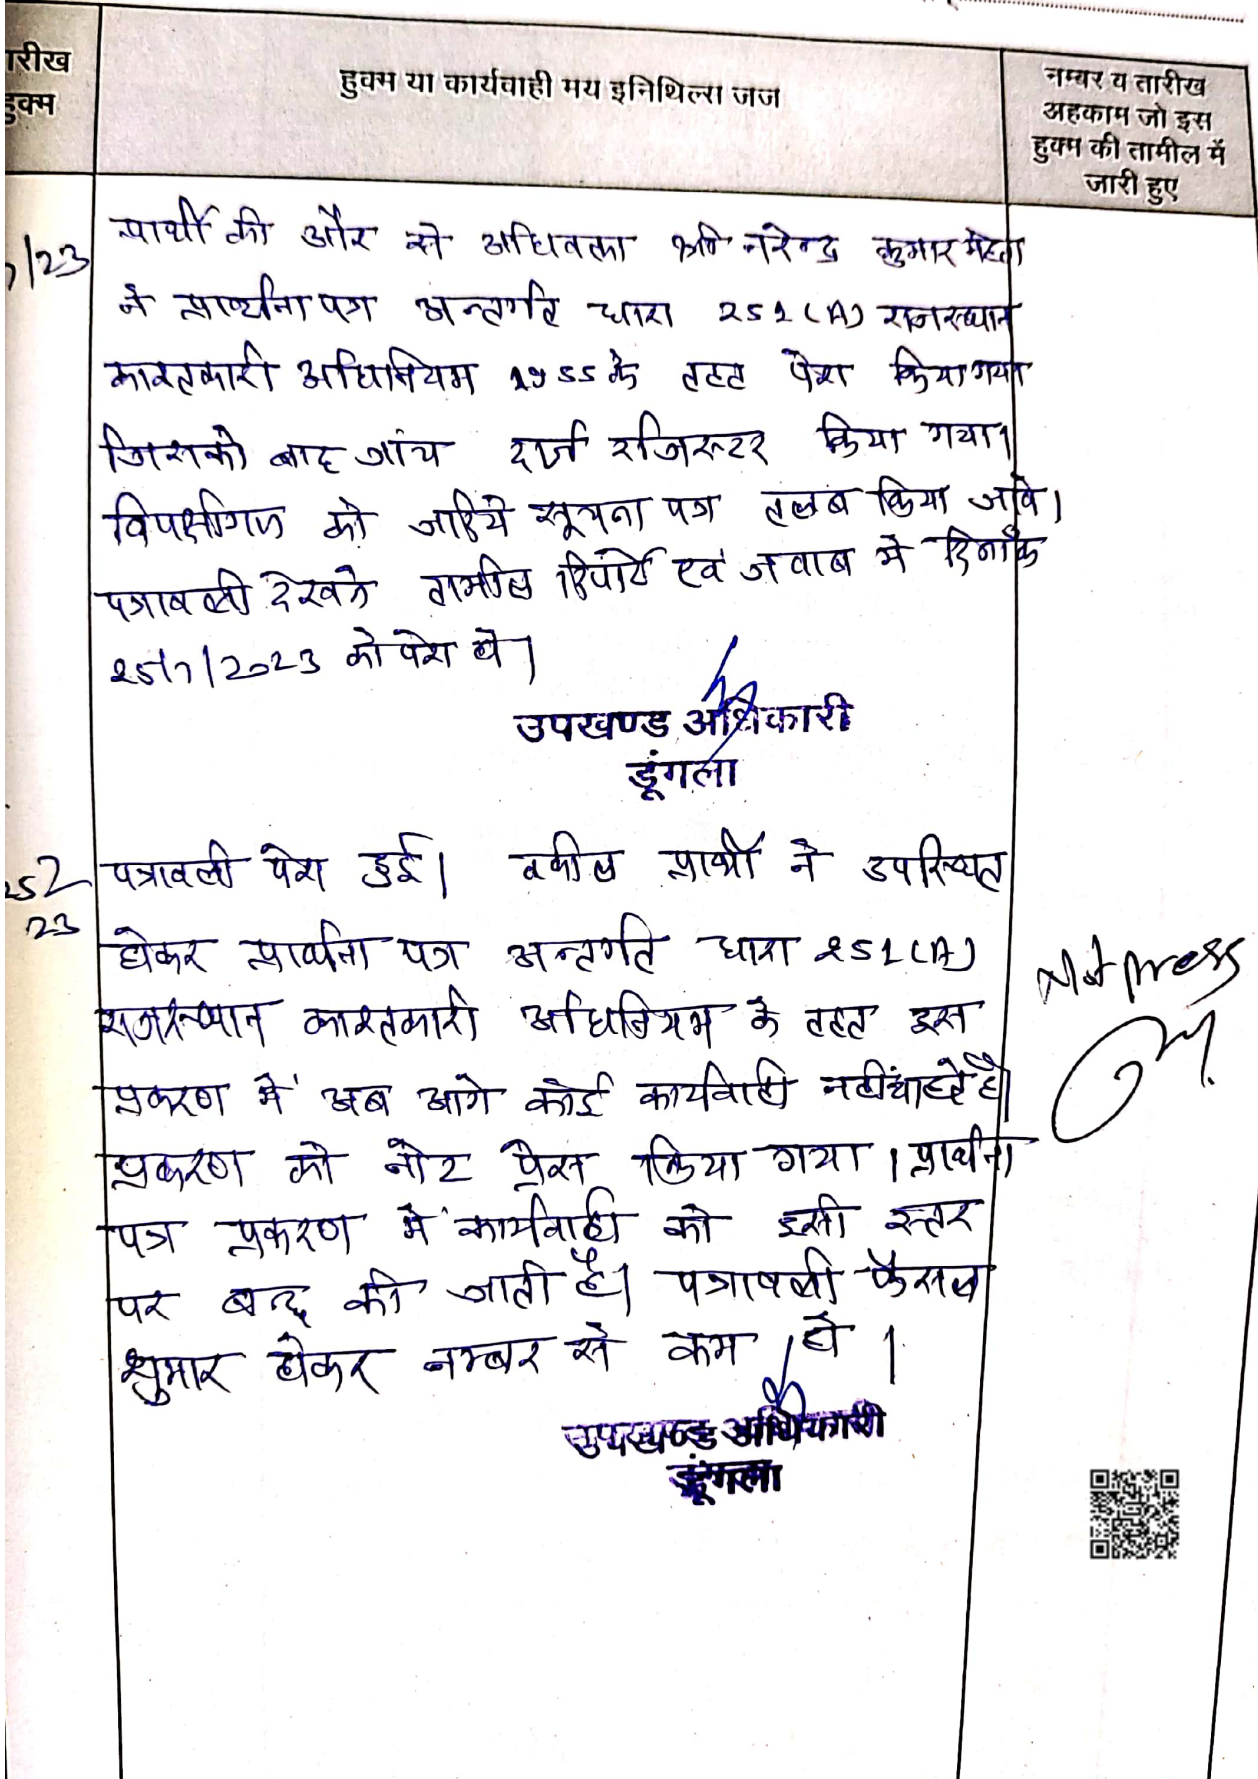 तारीख
हुक्म
हुक्म या कार्यवाही मय इनिथिल्स जज
नम्बर व तारीख
अहकाम जो इस
हुक्म की तामील में
जारी हुए
/23
प्रार्थी की और से अधिवक्ता श्री नरेन्द्र कुमार मेहता
ने प्रार्थना पत्र अन्तर्गत धारा 251(A) राजस्थान
काश्तकारी अधिनियम 1955 के तहत पेश किया गया
जिसको बाद जांच दर्ज रजिस्टर किया गया।
विपक्षीगण को जरिये सूचना पत्र तलब किया जावे।
पत्रावली देखने तामील रिपोर्ट एवं जवाब मे दिनांक
25/7/2023 को पेश हो।
उपखण्ड अधिकारी
डूंगला
25/7
23
पत्रावली पेश हुई। वकील प्रार्थी ने उपस्थित
होकर प्रार्थना पत्र अन्तर्गत धारा 251(A)
राजस्थान काश्तकारी अधिनियम के तहत इस
प्रकरण में अब आगे कोई कार्यवाही नहीं चाहते है।
प्रकरण को नोट प्रेस किया गया। प्रार्थना
पत्र प्रकरण में कार्यवाही को इसी स्तर
पर बन्द की जाती है। पत्रावली फैसल
शुमार होकर नम्बर से कम हो।
Not press
उपखण्ड अधिकारी
डूंगला